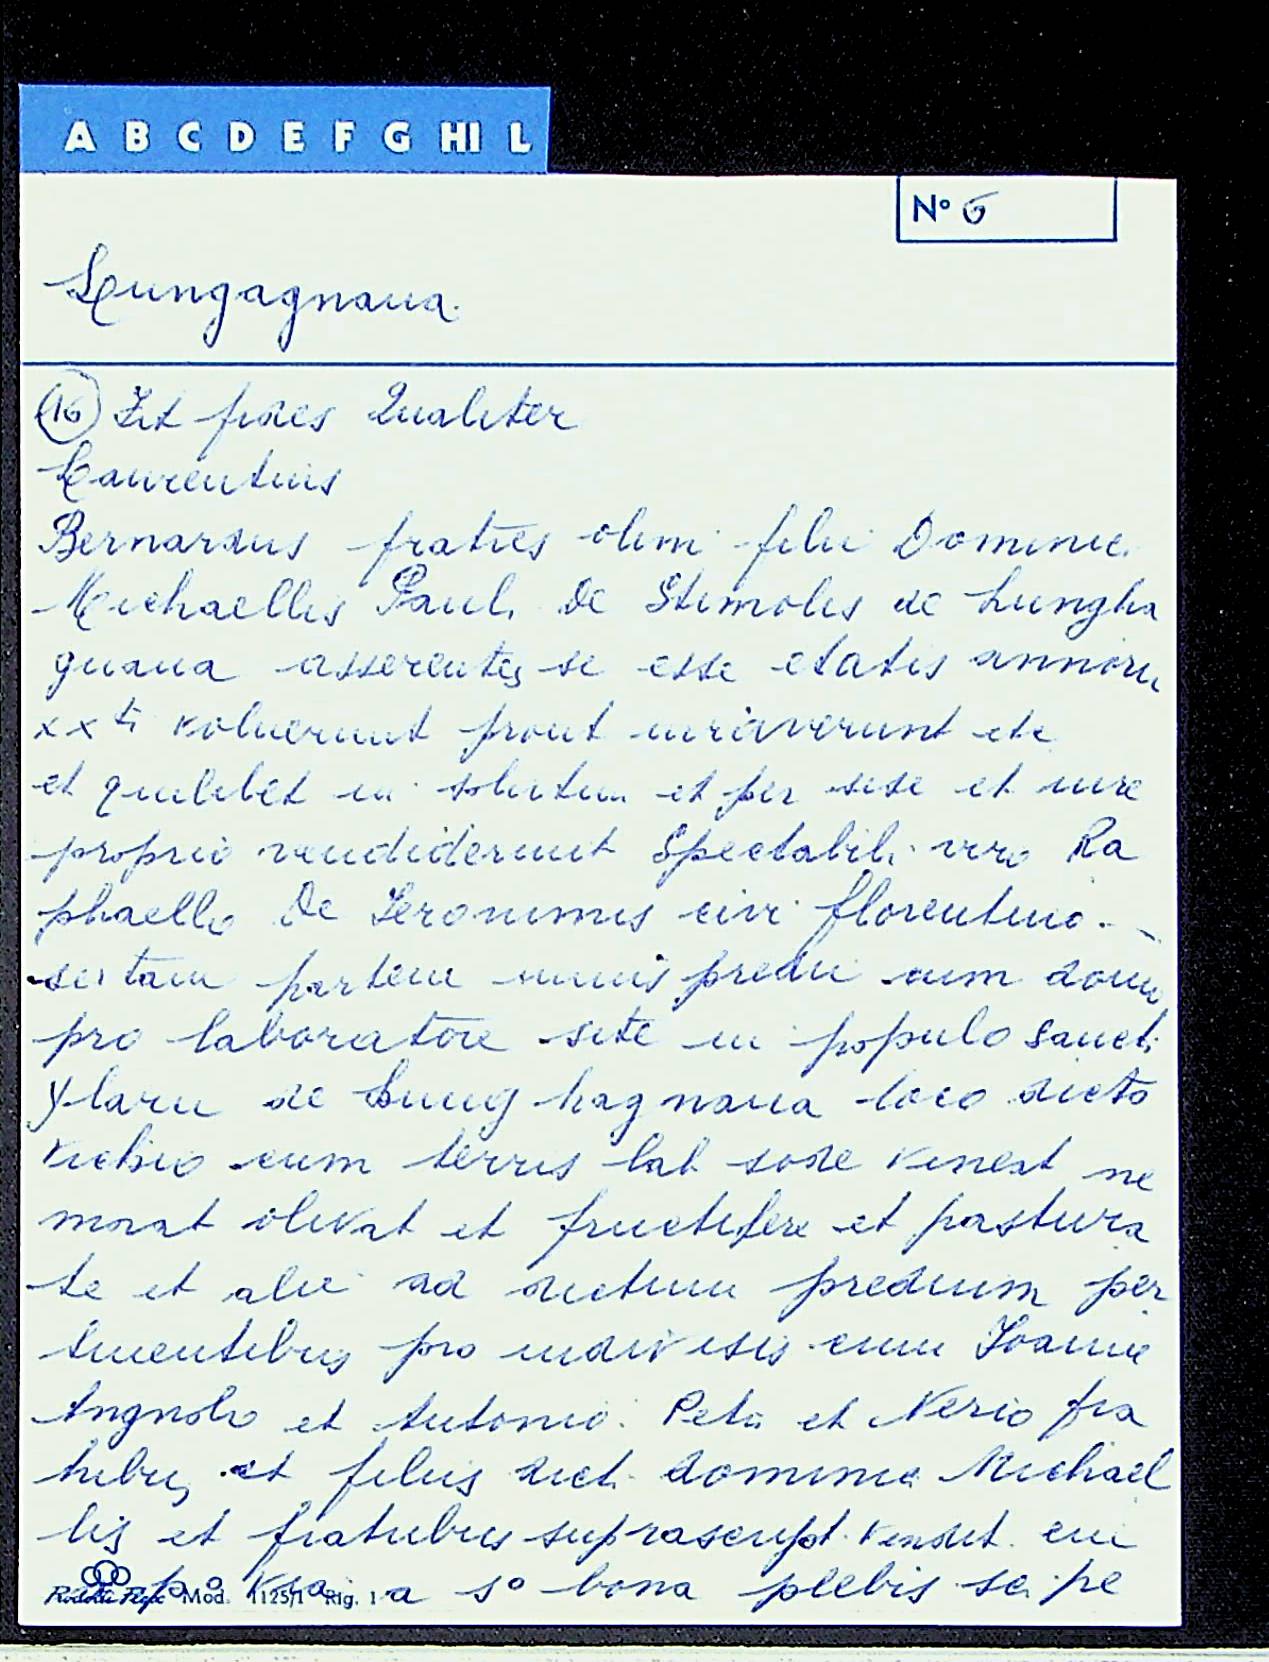 A B C D E F G HI L
N° 6
Lungagnana.
(16) Fit fides Qualiter
Laurentius
Bernardus fratres olim filii Dominici
Michaellis Pauli de Stimolis de Lungha
gnana asserentes se esse etatis annoru
xx ti voluerunt prout iuraverunt etc
et quilibet in solutum et per sese et iure
proprio vendiderunt Spectabili viro Ra
phaello De Ieronimis civi florentino.
sertam partem unius predii cum domo
pro laboratore site in populo Sancti
Ylarii de Lung hagnana loco dicto
Vichio cum terris lab sode vineat ne
morat olivat et fructifere et pastura
te et alii ad dictum predium per
tinentibus pro indivisis cum Ioanne
Angnolo et Antonio. Peto et Nerio fra
tribus et filiis dict. dominici Michael
lis et fratribus suprascript. vendit. cui
a s° bona plebis se. pe
Mod. 1125/1 Rig. 1